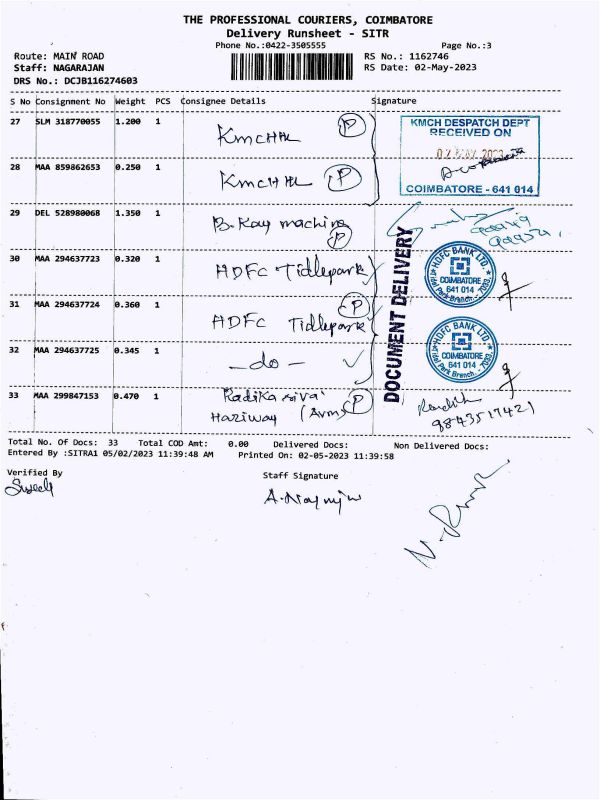 THE PROFESSIONAL COURIERS, COIMBATORE
Delivery Runsheet - SITR
Phone No.:0422-3505555 Page No.:3
Route: MAIN ROAD RS No.: 1162746
Staff: NAGARAJAN RS Date: 02-May-2023
DRS No.: DCJB116274603
S No Consignment No Weight PCS Consignee Details Signature
27 SLM 318770055 1.200 1 KmcHHL P
KMCH DESPATCH DEPT
RECEIVED ON
28 MAA 859862653 0.250 1 KmcHHL P
COIMBATORE - 641 014
29 DEL 528980068 1.350 1 B.Kay machine P
30 MAA 294637723 0.320 1 HDFC Tidlepark
HDFC BANK LTD.
COIMBATORE
641 014
Park Branch - 2003
31 MAA 294637724 0.360 1 P
HDFC Tidlepark
HDFC BANK LTD.
COIMBATORE
641 014
Park Branch - 2003
32 MAA 294637725 0.345 1 -do-
DOCUMENT DELIVERY
33 MAA 299847153 0.470 1 Radika siva P
Hariway
9843517421
Total No. Of Docs: 33 Total COD Amt: 0.00 Delivered Docs: Non Delivered Docs:
Entered By :SITRA1 05/02/2023 11:39:48 AM Printed On: 02-05-2023 11:39:58
Verified By Staff Signature